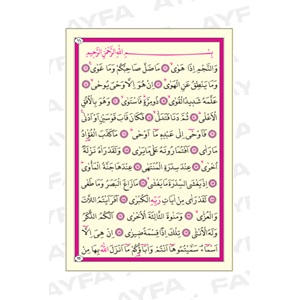 بِسْــــــمِ اللهِ الرَّحْمٰنِ الرَّح۪يمِ
وَالنَّجْمِ اِذَا هَوٰىۙ مَا ضَلَّ صَاحِبُكُمْ وَمَا غَوٰىۚ
وَمَا يَنْطِقُ عَنِ الْهَوٰىۜ اِنْ هُوَ اِلَّا وَحْيٌ يُوحٰىۙ
عَلَّمَهُ شَد۪يدُ الْقُوٰىۙ ذُو مِرَّةٍۜ فَاسْتَوٰىۙ وَهُوَ بِالْاُفُقِ
الْاَعْلٰىۜ ثُمَّ دَنَا فَتَدَلّٰىۙ فَكَانَ قَابَ قَوْسَيْنِ اَوْ اَدْنٰىۚ
فَاَوْحٰٓى اِلٰى عَبْدِه۪ مَٓا اَوْحٰىۜ مَا كَذَبَ الْفُؤٰادُ
مَا رَاٰى اَفَتُمَارُونَهُ عَلٰى مَا يَرٰى وَلَقَدْ رَاٰهُ نَزْلَةً
اُخْرٰىۙ عِنْدَ سِدْرَةِ الْمُنْتَهٰى عِنْدَهَا جَنَّةُ الْمَأْوٰىۜ
اِذْ يَغْشَى السِّدْرَةَ مَا يَغْشٰىۙ مَا زَاغَ الْبَصَرُ وَمَا طَغٰى
لَقَدْ رَاٰى مِنْ اٰيَاتِ رَبِّهِ الْكُبْرٰى اَفَرَاَيْتُمُ اللَّاتَ
وَالْعُزّٰىۙ وَمَنٰوةَ الثَّالِثَةَ الْاُخْرٰى اَلَكُمُ الذَّكَرُ
وَلَهُ الْاُنْثٰى تِلْكَ اِذًا قِسْمَةٌ ض۪يزٰى اِنْ هِيَ اِلَّٓا
اَسْمَٓاءٌ سَمَّيْتُمُوهَٓا اَنْتُمْ وَاٰبَٓاؤُ۬كُمْ مَٓا اَنْزَلَ اللهُ بِهَا مِنْ
AYFA